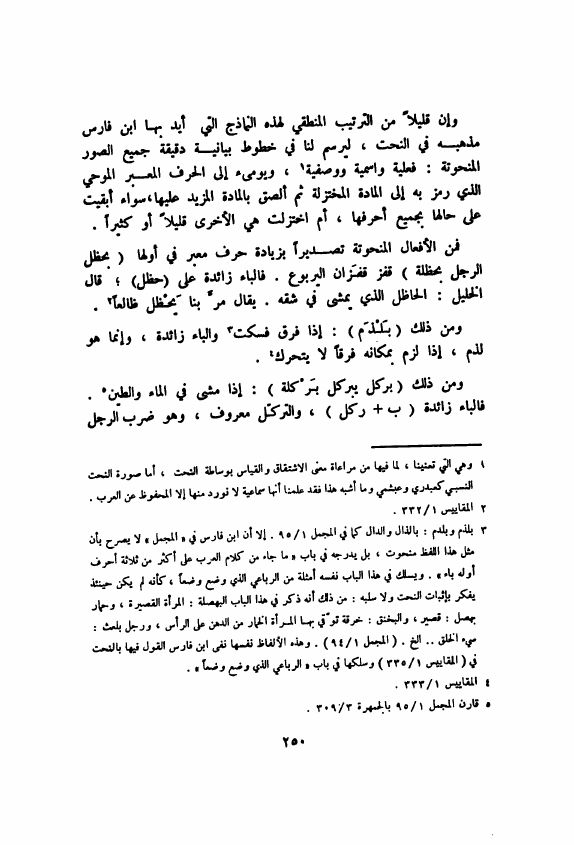 وإن قليلاً من الترتيب المنطقي لهذه النماذج التي أيد بها ابن فارس
مذهبه في النحت ، ليرسم لنا في خطوط بيانية دقيقة جميع الصور
المنحوتة : فعلية واسمية ووصفية١ ، ويومىء إلى الحرف المعبر الموحي
الذي رمز به إلى المادة المختزلة ثم ألصق بالمادة المزيد عليها،سواء أبقيت
على حالها بجميع أحرفها ، أم اختزلت هي الأخرى قليلاً أو كثيراً .
فمن الأفعال المنحوتة تصديراً بزيادة حرف معبر في أولها ( بحظل
الرجل بحظلة ) قفز قفزان اليربوع . فالباء زائدة على (حظل) ؛ قال
الخليل : الحاظل الذي يمشى في شقه . يقال مرَّ بنا يَحْظل ظالعاً٢ .
ومن ذلك ( بَلْذَم ) : إذا فرق فسكت٣ والباء زائدة ، وإنما هو
لذم ، إذا لزم بمكانه فرقاً لا يتحرك٤ .
ومن ذلك ( بركل يبركل بَرْكلة ) : إذا مشى في الماء والطين٥ .
فالباء زائدة ( ب + ركل ) ، والتركّل معروف ، وهو ضرب الرجل
١ وهي التي تعنينا ، لما فيها من مراعاة معنى الاشتقاق والقياس بوساطة النحت ، أما صورة النحت
النسبي كعبدري وعبشمي وما أشبه هذا فقد علمنا أنها سماعية لا نورد منها إلا المحفوظ عن العرب .
٢ المقاييس ٣٣٢/١ .
٣ بلذم وبلدم : بالذال والدال كما في المجمل ٩٥/١ . إلا أن ابن فارس في « المجمل » لا يصرح بأن
مثل هذا اللفظ منحوت ، بل يدرجه في باب « ما جاء من كلام العرب على أكثر من ثلاثة أحرف
أوله باء » . ويسلك في هذا الباب نفسه أمثلة من الرباعي الذي وضع وضعاً ، كأنه لم يكن حينئذ
يفكر بإثبات النحت ولا سلبه : من ذلك أنه ذكر في هذا الباب البهصلة : المرأة القصيرة ، وحمار
بهصل : قصير ، والبخنق : خرقة توقّي بها المرأة الخمار من الدهن على الرأس ، ورجل بلعث :
سيء الخلق .. الخ . ( المجمل ٩٤/١ ) . وهذه الألفاظ نفسها نفى ابن فارس القول فيها بالنحت
في ( المقاييس ٣٣٥/١ ) وسلكها في باب « الرباعي الذي وضع وضعاً » .
٤ المقاييس ٣٣٣/١ .
٥ قارن المجمل ٩٥/١ بالجمهرة ٣٠٩/٣ .
٢٥٠